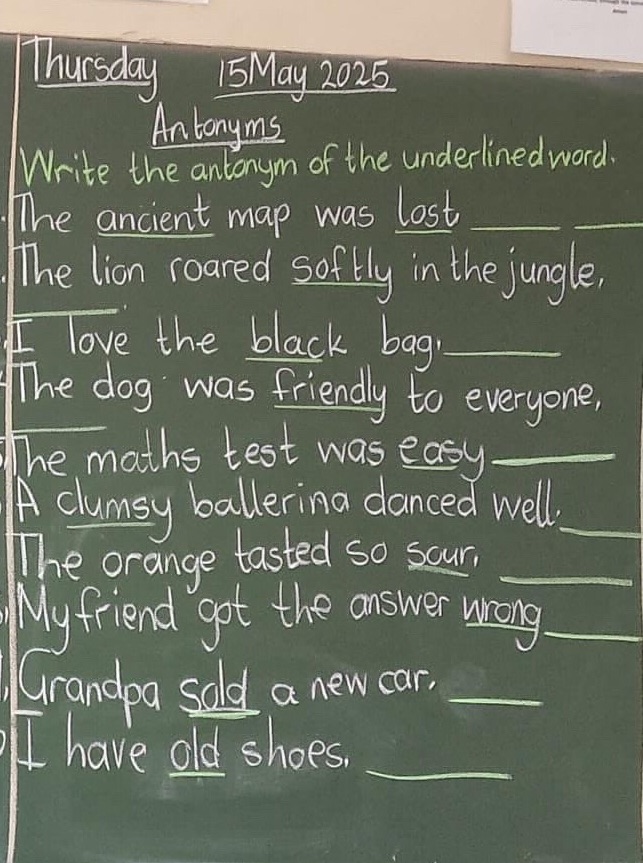 Thursday 15 May 2025
Antonyms
Write the antonym of the underlined word.
The ancient map was lost ____ ____
The lion roared softly in the jungle.
____
I love the black bag. ____
The dog was friendly to everyone.
____
The maths test was easy ____
A clumsy ballerina danced well. ____
The orange tasted so sour. ____
My friend got the answer wrong ____
Grandpa sold a new car. ____
I have old shoes. ____